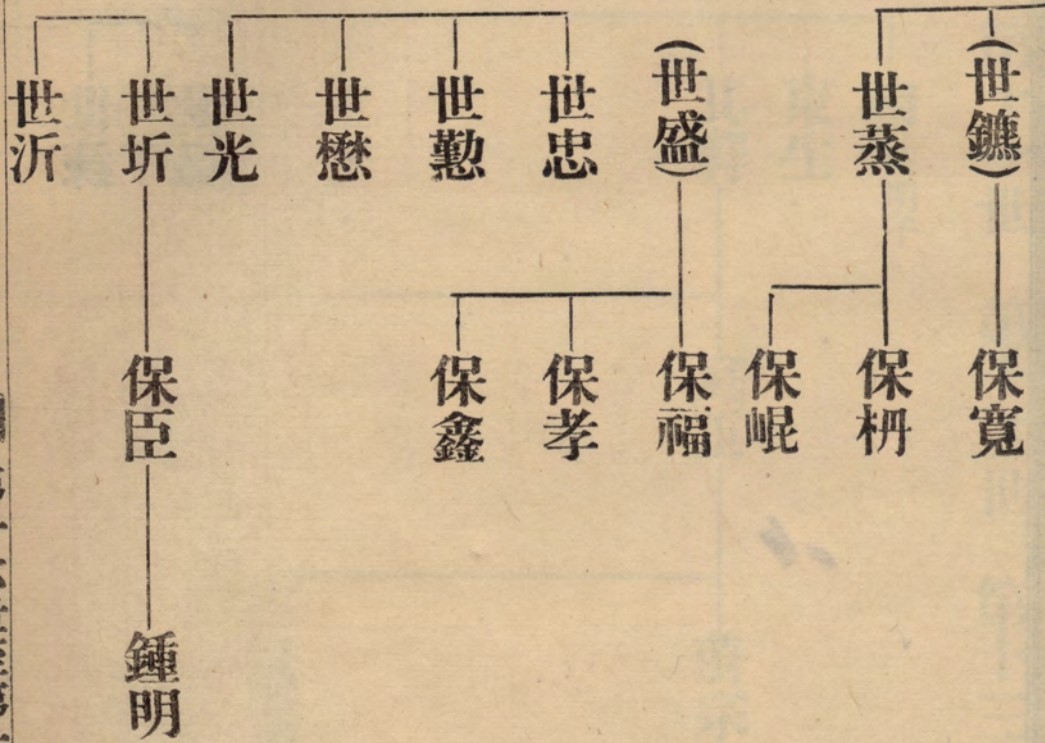 (世鑣)
世蒸
(世盛)
世忠
世懃
世懋
世光
世圻
世沂
保寬
保枬
保崐
保福
保孝
保鑫
保臣
鍾明